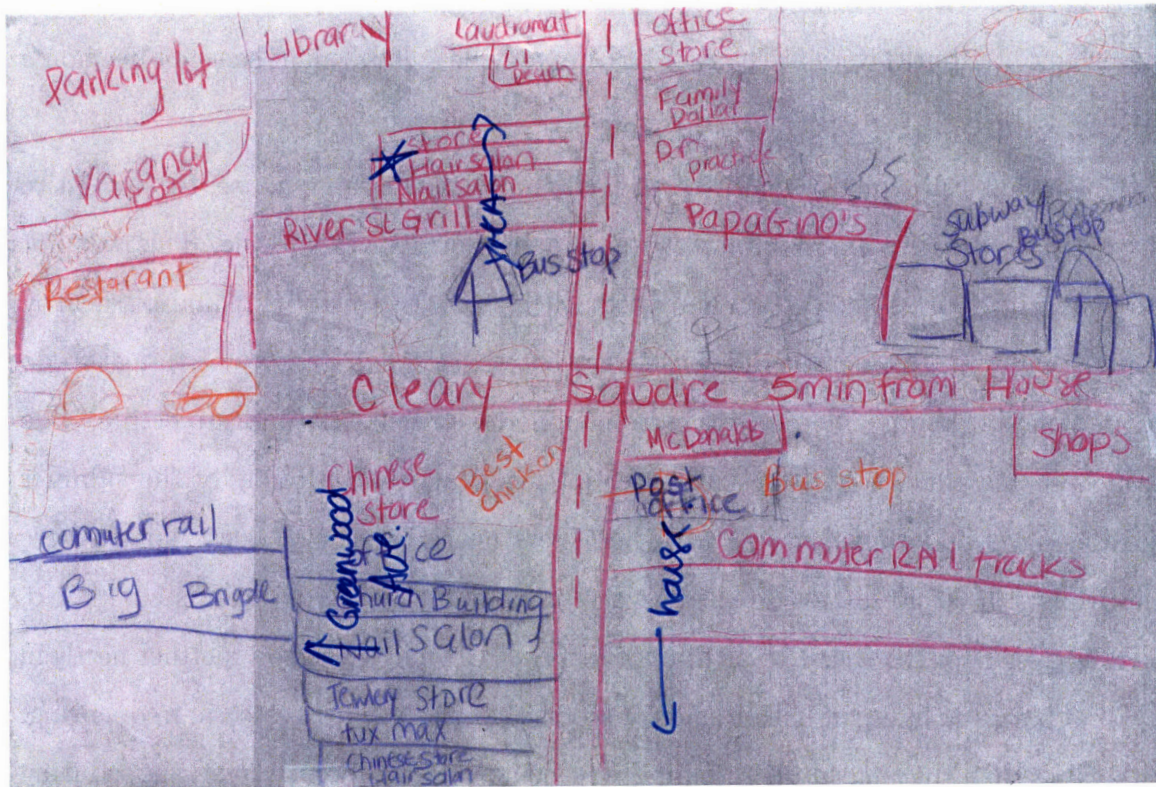 Parking lot
Library
Laudromat
Li
Peach
office
store
Family
Dollar
Dr.
practice
Vacancy
LOT
Store
Hair salon
Nail salon
River St Grill
YMCA
Bus stop
PapaGino's
Subway
Stores
Bus stop
Restarant
Cleary Square 5min from House
McDonalds
Shops
Chinese
store
Best
chicken
Post
office
Bus stop
Greenwood
Ave.
office
comuter rail
Big Brigde
house
Commuter RAil tracks
Church Building
Nail Salon
Jewlery Store
tux max
Chinese Store
Hair salon